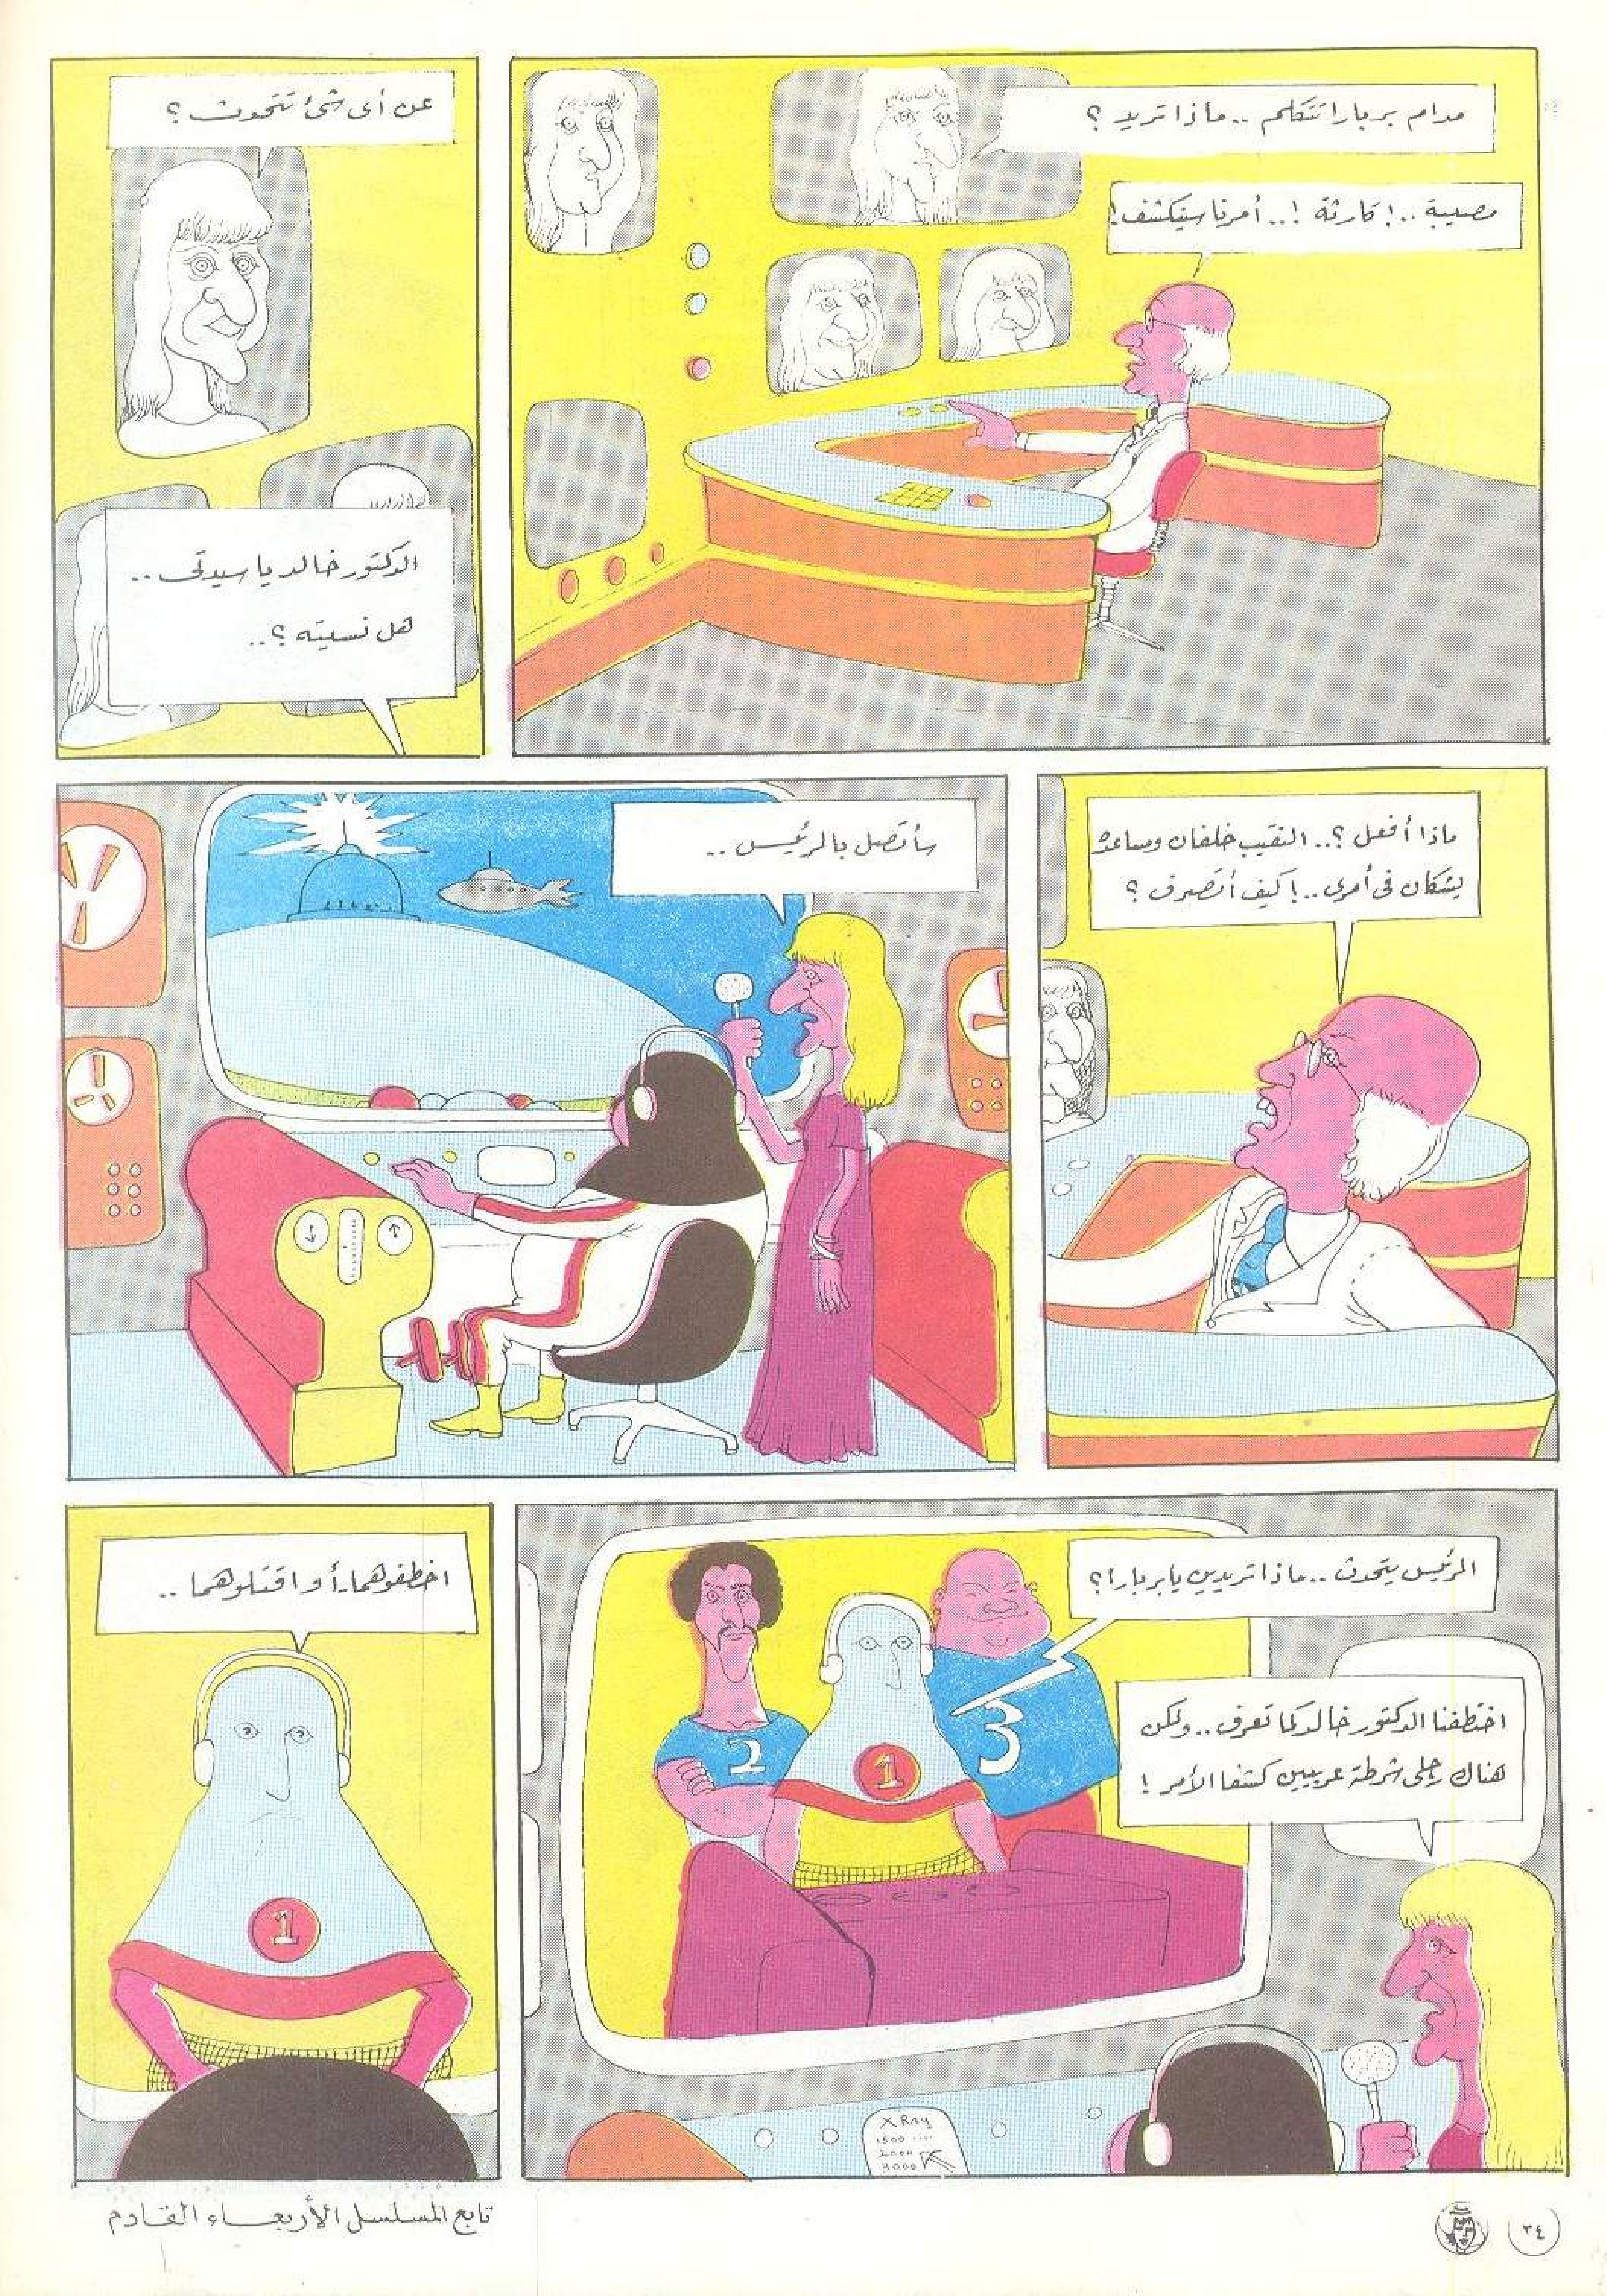 مدام بربارا تتكلم .. ماذا تريد ؟
مصيبة ..! كارثة !.. أمرنا سينكشف!
عن أى شئ تتحدث ؟
الدكتور خالد يا سيدتى ..
هل نسيته ؟ ..
ماذا أفعل ؟.. النقيب خلفان ومساعده
يشكان فى أمرى ..! كيف أتصرف ؟
سأتصل بالرئيس ..
الرئيس يتحدث .. ماذا تريدين يا بربارا ؟
3
2
1
اختطفنا الدكتور خالد كما تعرف .. ولكن
هناك رجلى شرطة عربيين كشفا الأمر !
X Ray
1500
2000
3000
اخطفوهما .. أو اقتلوهما ..
1
تابع المسلسل الأربعاء القادم
٣٤